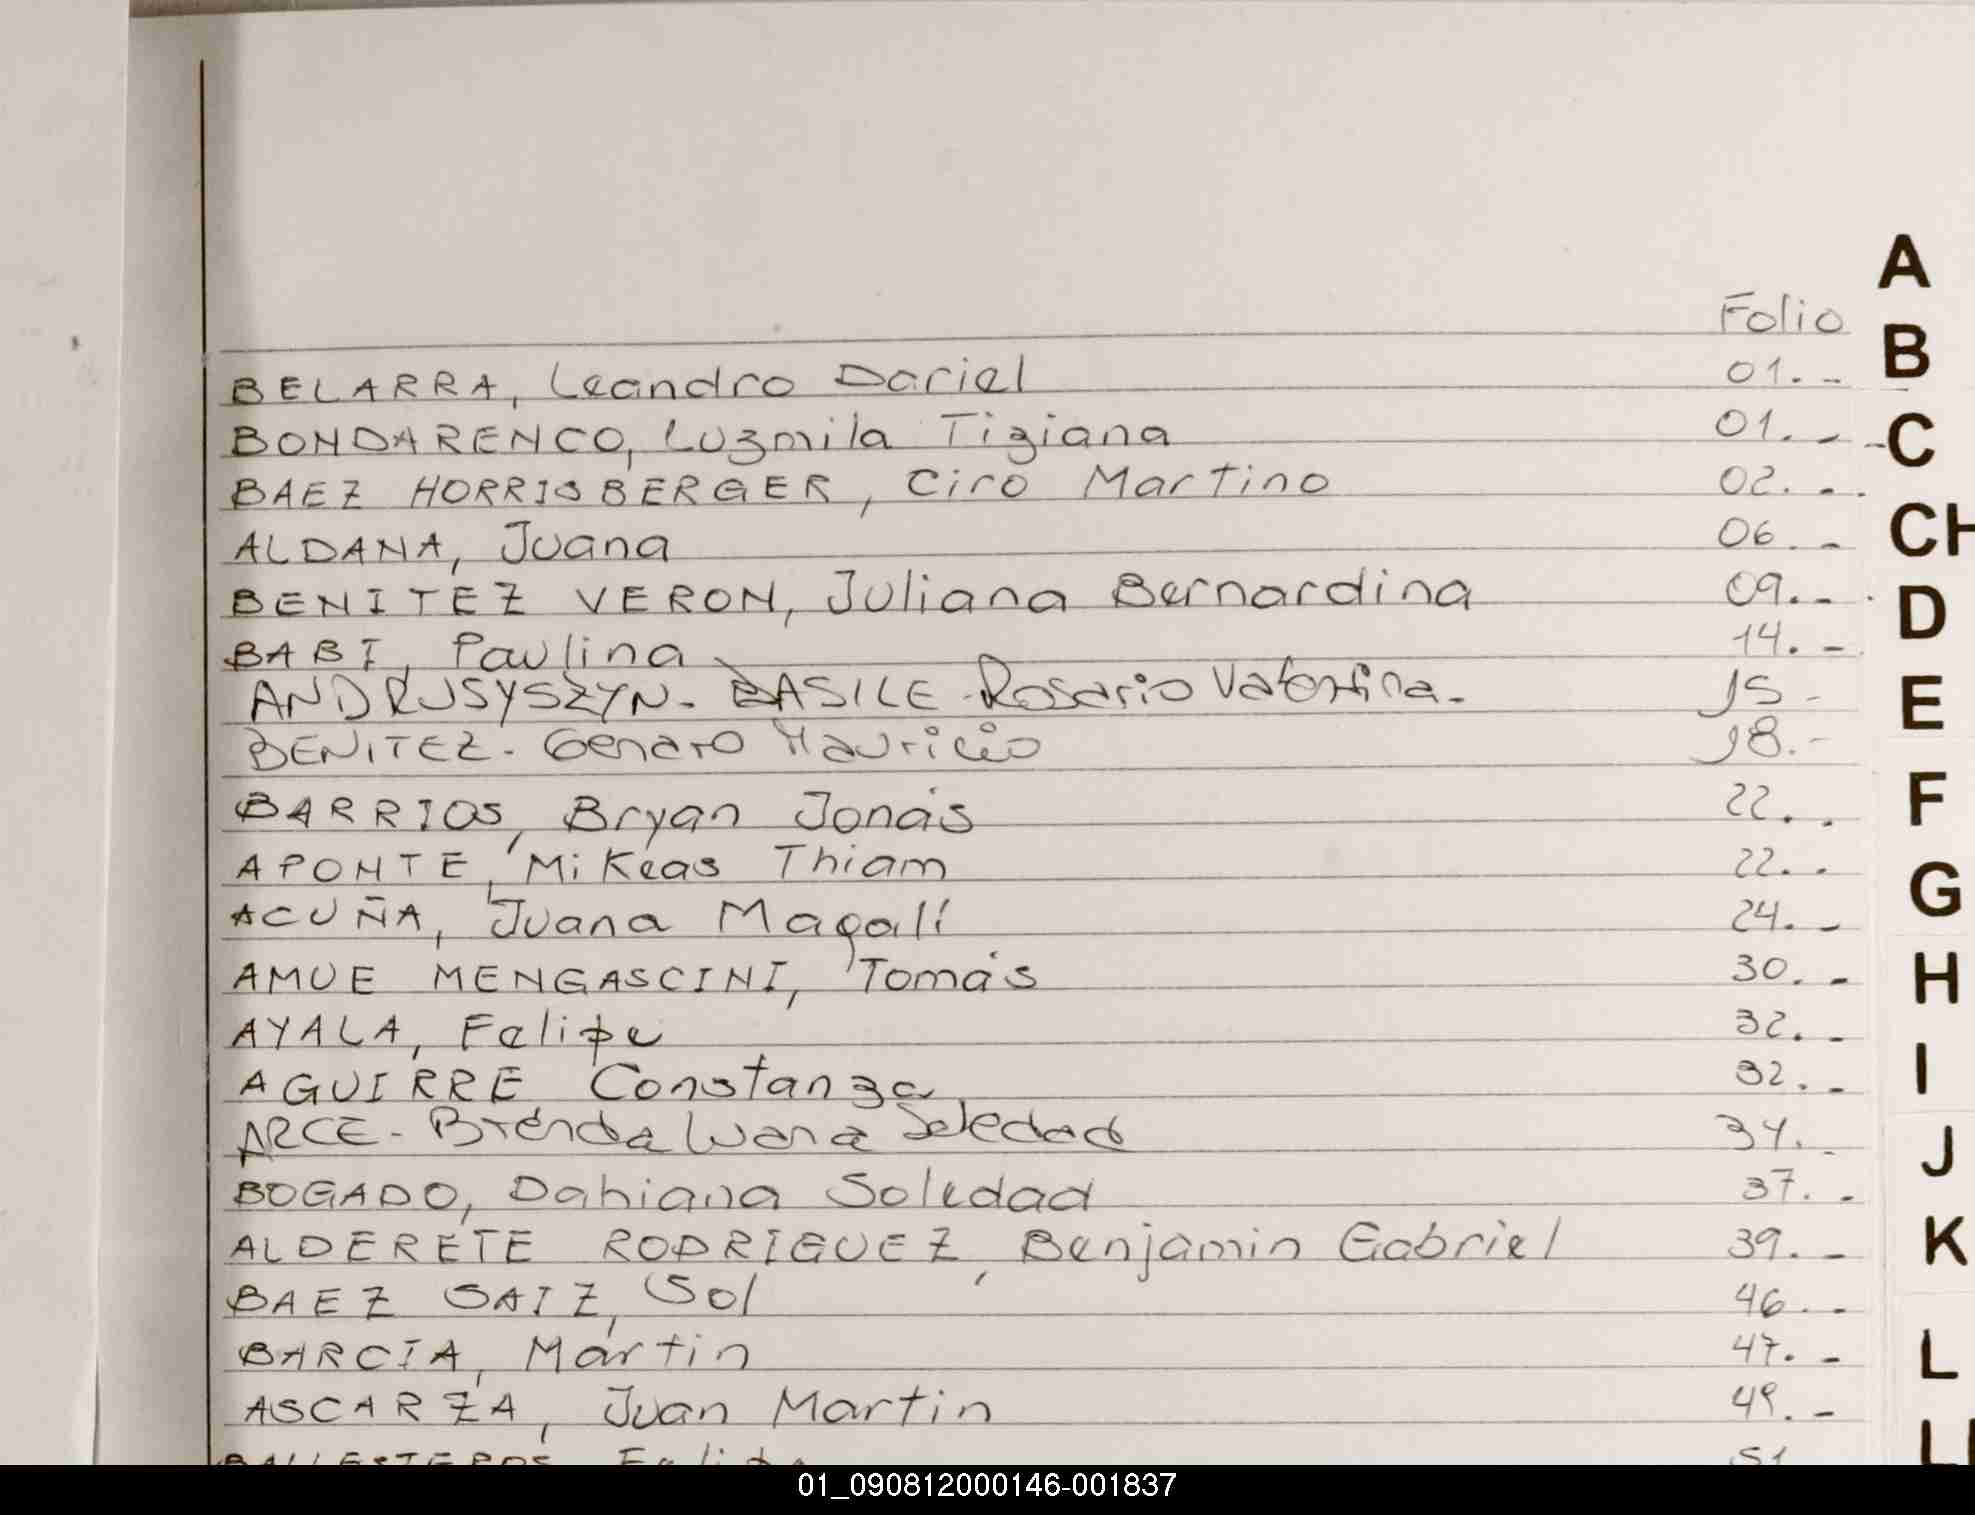 Folio
BELARRA, Leandro Dariel 01. -
BONDARENCO, Luzmila Tiziana 01. -
BAEZ HORRISBERGER, Ciro Martino 02. -
ALDANA, Juana 06. -
BENITEZ VERON, Juliana Bernardina 09. -
BABI, Paulina 14. -
ANDRUSYSZYN - BASILE - Rosario Valentina - 15 -
BENITEZ - Genaro Mauricio 18. -
BARRIOS, Bryan Jonás 22. .
APONTE, Mikeas Thiam 22. .
ACUÑA, Juana Magalí 24. -
AMUE MENGASCINI, Tomás 30. -
AYALA, Felipe 32. -
AGUIRRE Constanza 32. -
ARCE - Brenda Luana Soledad 34. -
BOGADO, Dahiana Soledad 37. .
ALDERETE RODRIGUEZ, Benjamin Gabriel 39. -
BAEZ SAIZ, Sol 46. -
BARCIA, Martin 47. -
ASCARZA, Juan Martin 49. -
BALLESTEROS, 51
A
B
C
CH
D
E
F
G
H
I
J
K
L
01_090812000146-001837